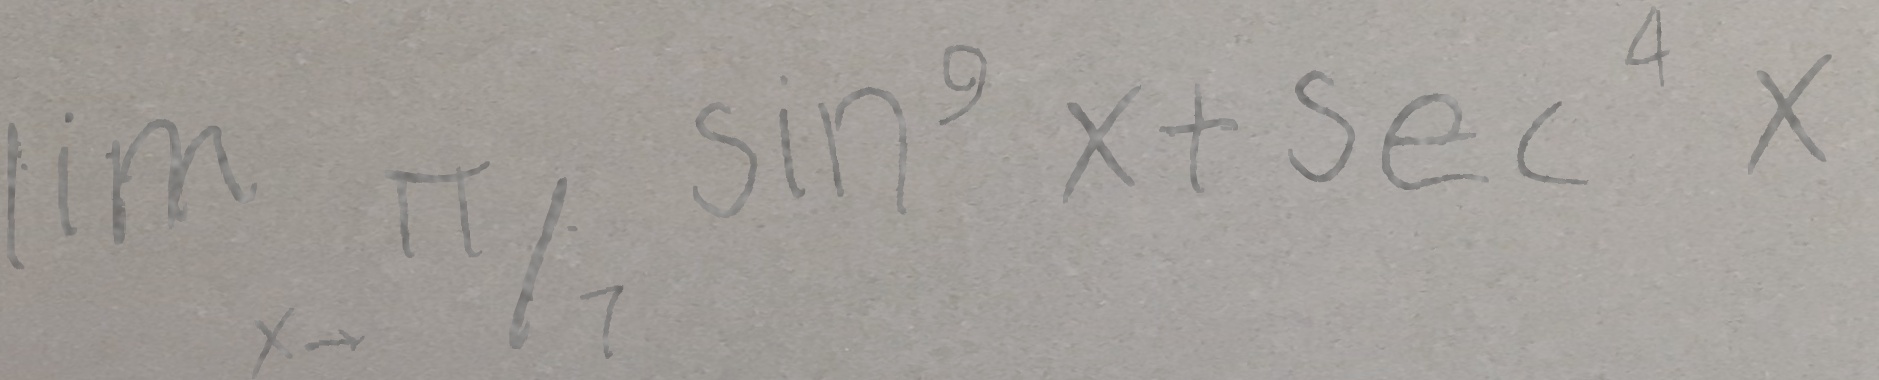 lim x→ π/7 sin⁹ x + sec⁴ x